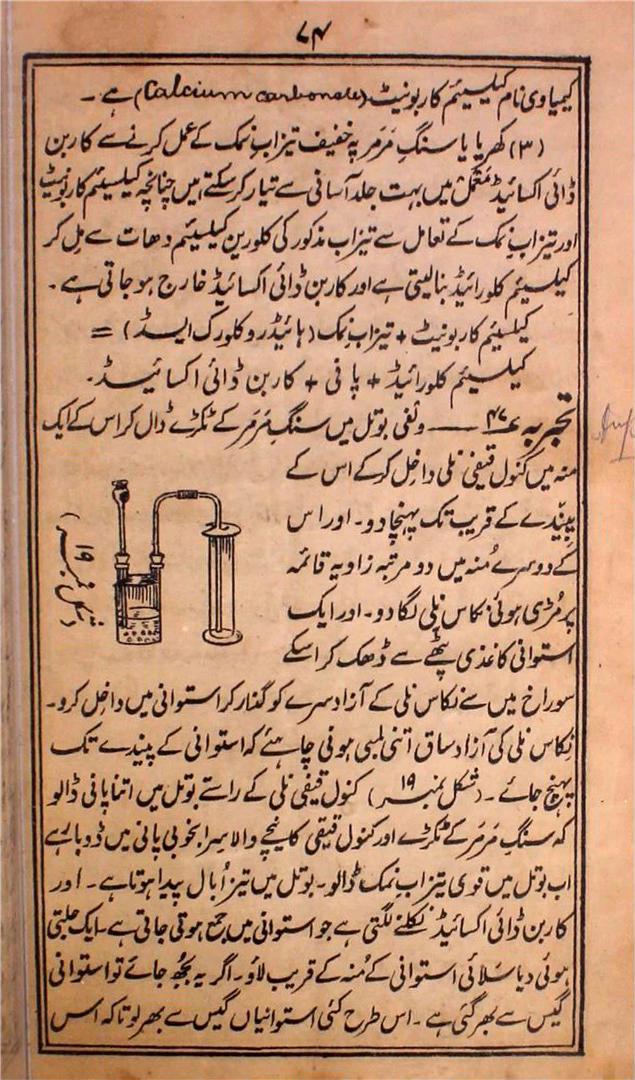 ۷۴
کیمیاوی نام کیلسیئم کاربونیٹ (Calcium carbonate) ہے ۔
(۳) کھریا یا سنگِ مَرمَر پہ خفیف تیزابِ نمک کے عمل کرنے سے کاربن
ڈائی اکسائیڈ معمل میں بہت جلد آسانی سے تیار کرسکتے ہیں چنانچہ کیلسیئم کاربونیٹ
اور تیزابِ نمک کے تعامل سے تیزاب مذکور کی کلورین کیلسیئم دھات سے مل کر
کیلسیئم کلورائیڈ بنا لیتی ہے اور کاربن ڈائی اکسائیڈ خارج ہو جاتی ہے ۔
کیلسیئم کاربونیٹ + تیزابِ نمک (ہائیڈروکلورک ایسڈ) =
کیلسیئم کلورائیڈ + پانی + کاربن ڈائی اکسائیڈ ۔
تجربہ ۴۷ ــــ ولفی بوتل میں سنگِ مَرمَر کے ٹکڑے ڈال کر اس کے ایک
منہ میں کنول قیفی نلی داخل کرکے اس کے
پیندے کے قریب تک پہنچا دو ۔ اور اس
کے دوسرے مُنہ میں دو مرتبہ زاویہ قائمہ
پر مُڑی ہوئی نکاس نلی لگا دو ۔ اور ایک
استوانی کاغذی پٹھے سے ڈھک کر اسکے
(شکل نمبر ۱۹)
سوراخ میں سے نکاس نلی کے آزاد سرے کو گذار کر استوانی میں داخل کرو ۔
نکاس نلی کی آزاد ساق اتنی لمبی ہونی چاہئے کہ استوانی کے پیندے تک
پہنچ جائے ۔ (شکل نمبر ۱۹) کنول قیفی نلی کے راستے بوتل میں اتنا پانی ڈالو
کہ سنگِ مَرمَر کے ٹکڑے اور کنول قیفی کا نیچے والا سِرا بخوبی پانی میں ڈوبا رہے
اب بوتل میں قوی تیزابِ نمک ڈالو ۔ بوتل میں تیز اُبال پیدا ہوتا ہے ۔ اور
کاربن ڈائی اکسائیڈ نکلنے لگتی ہے جو استوانی میں جمع ہوتی جاتی ہے ۔ ایک جلتی
ہوئی دیا سلائی استوانی کے مُنہ کے قریب لاؤ ۔ اگر یہ بجھ جائے تو استوانی
گیس سے بھر گئی ہے ۔ اس طرح کئی استوانیاں گیس سے بھر لو تاکہ اس